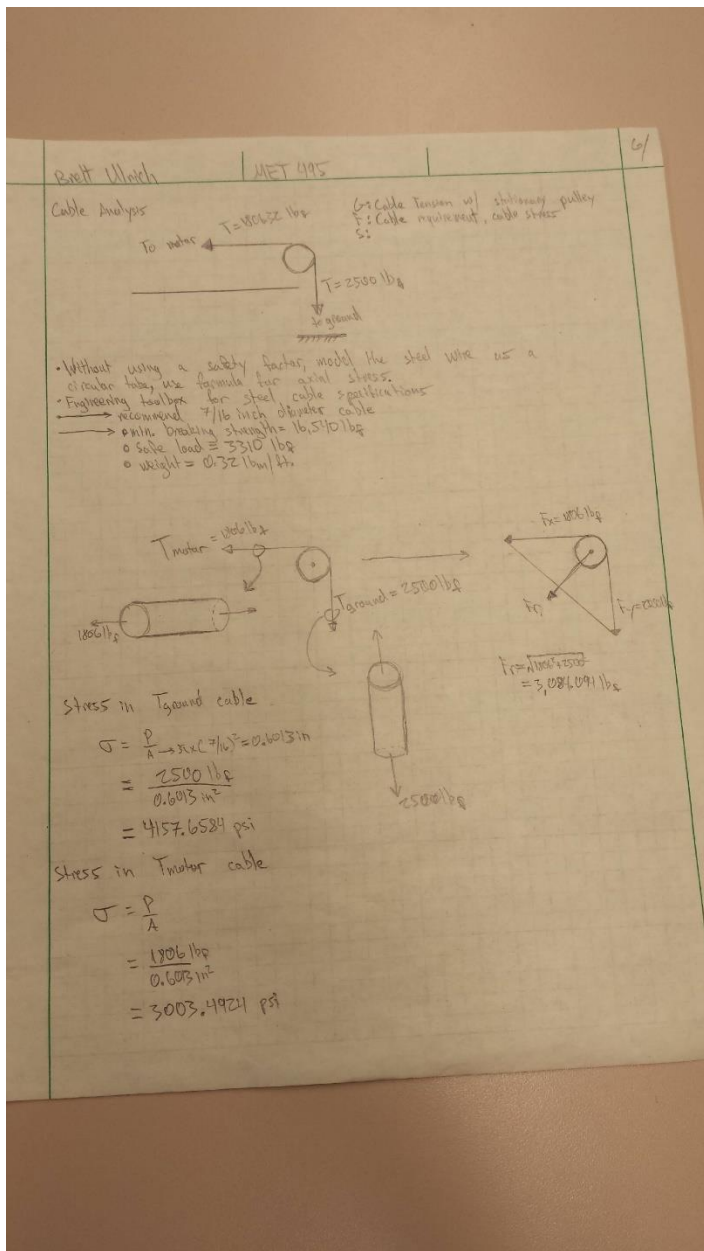 6/
Brett Ulrich MET 495
Cable Analysis
G: Cable Tension w/ stationary pulley
F: Cable requirement, cable stress
S:
To motor T=1806.32 lbf
T=2500 lbf
to ground
• Without using a safety factor, model the steel wire as a
circular tube, use formula for axial stress.
- Engineering toolbox for steel cable specifications
→ recommend 7/16 inch diameter cable
→ • min. breaking strength = 16,540 lbf
o safe load = 3310 lbf
o weight = 0.32 lbm/ft.
Tmotor = 1806 lbf
Tground = 2500 lbf
1806 lbf
2500 lbf
Fx=1806 lbf
Fr
Fr=√1806²+2500²
= 3,084.094 lbf
Stress in Tground cable
σ = P/A → π×(7/16)²=0.6013in
= 2500 lbf / 0.6013 in²
= 4157.6584 psi
Stress in Tmotor cable
σ = P/A
= 1806 lbf / 0.6013 in²
= 3003.4924 psi